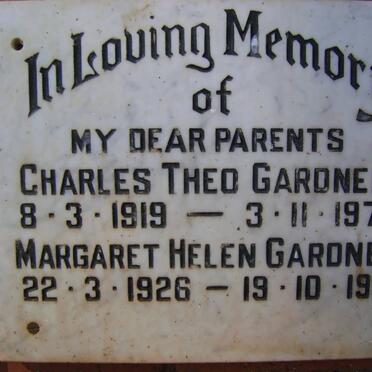 In Loving Memory
of
MY DEAR PARENTS
CHARLES THEO GARDNE
8·3·1919 — 3·11·197
MARGARET HELEN GARDNE
22·3·1926 — 19·10·19